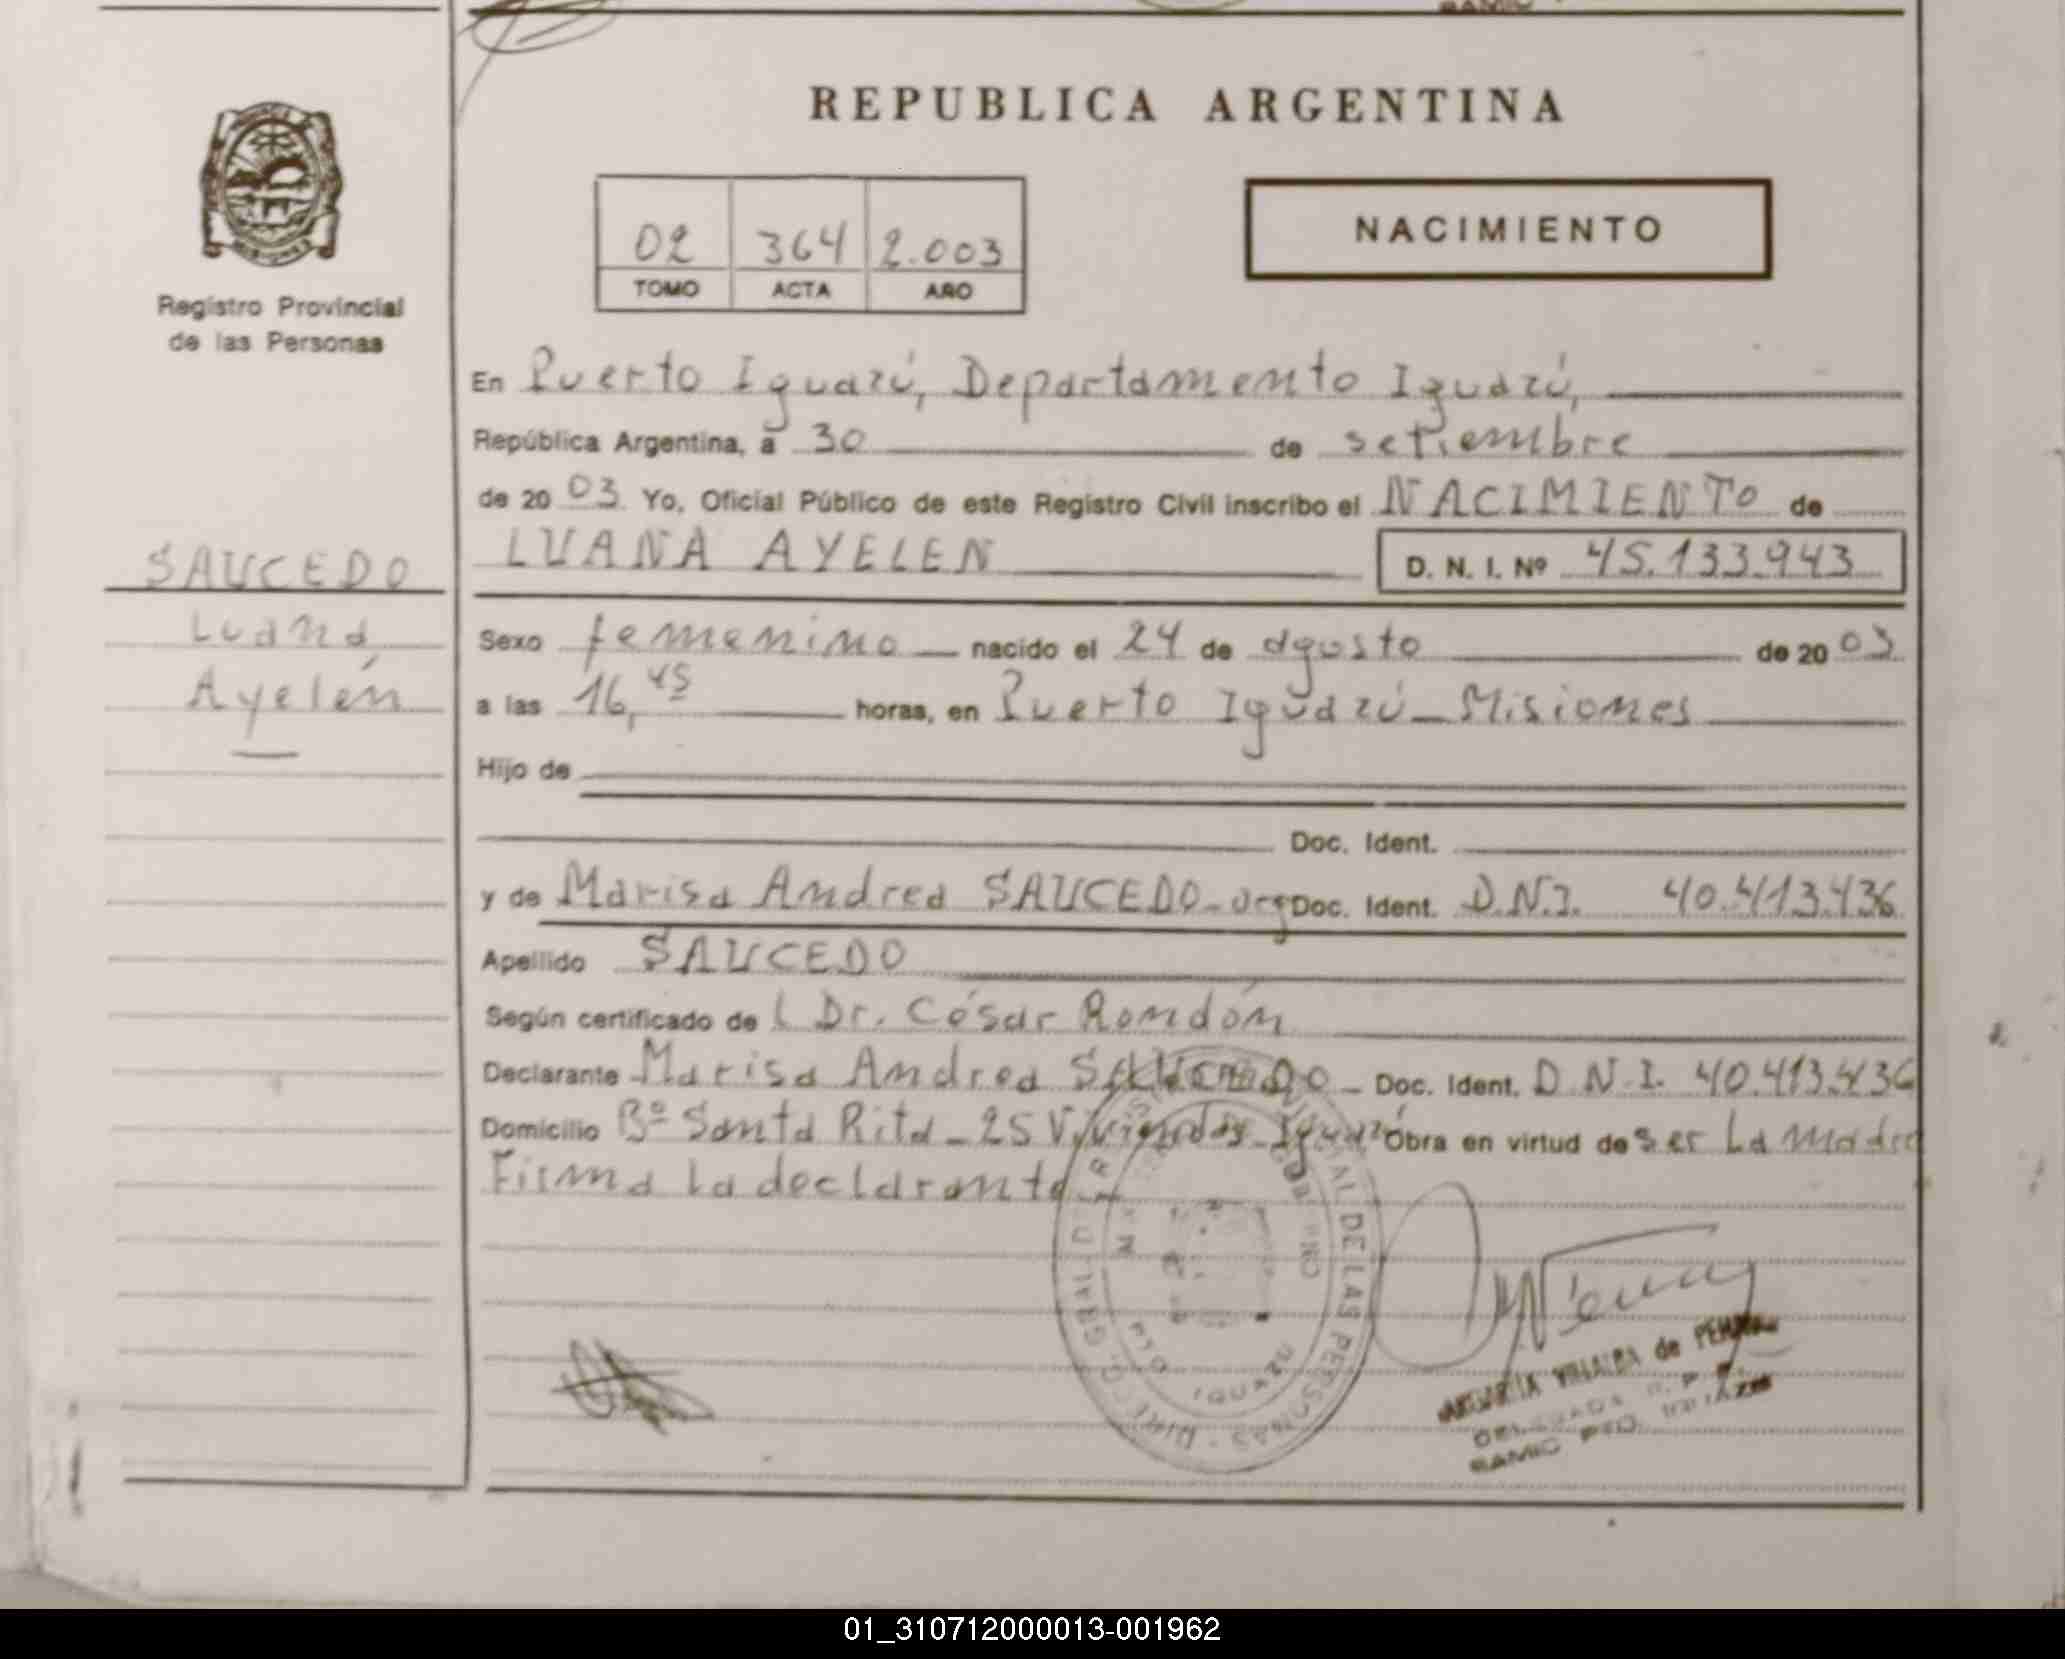 REPUBLICA ARGENTINA
NACIMIENTO
02 364 2.003
TOMO ACTA AÑO
Registro Provincial
de las Personas
En Puerto Iguazú, Departamento Iguazú,
República Argentina, a 30 de setiembre
de 20 03 Yo, Oficial Público de este Registro Civil inscribo el NACIMIENTO de
LUANA AYELEN D. N. I. Nº 45.133.943
SAUCEDO
Luana
Ayelén
Sexo femenino nacido el 24 de agosto de 20 03
a las 16,45 horas, en Puerto Iguazú - Misiones
Hijo de
Doc. Ident.
y de Marisa Andrea SAUCEDO - arg Doc. Ident. D.N.I. 40.413.436
Apellido SAUCEDO
Según certificado de l Dr. César Romdóm
Declarante Marisa Andrea SAUCEDO - Doc. Ident. D.N.I. 40.413.436
Domicilio Bº Santa Rita - 25 Viviendas - Iguazú Obra en virtud de ser la madre
Firma la declarante
DE LAS PERSONAS
PTO IGUAZU
VILLALBA de
DELEGADA R. P.
SAMIC PTO. IGUAZU
01_310712000013-001962